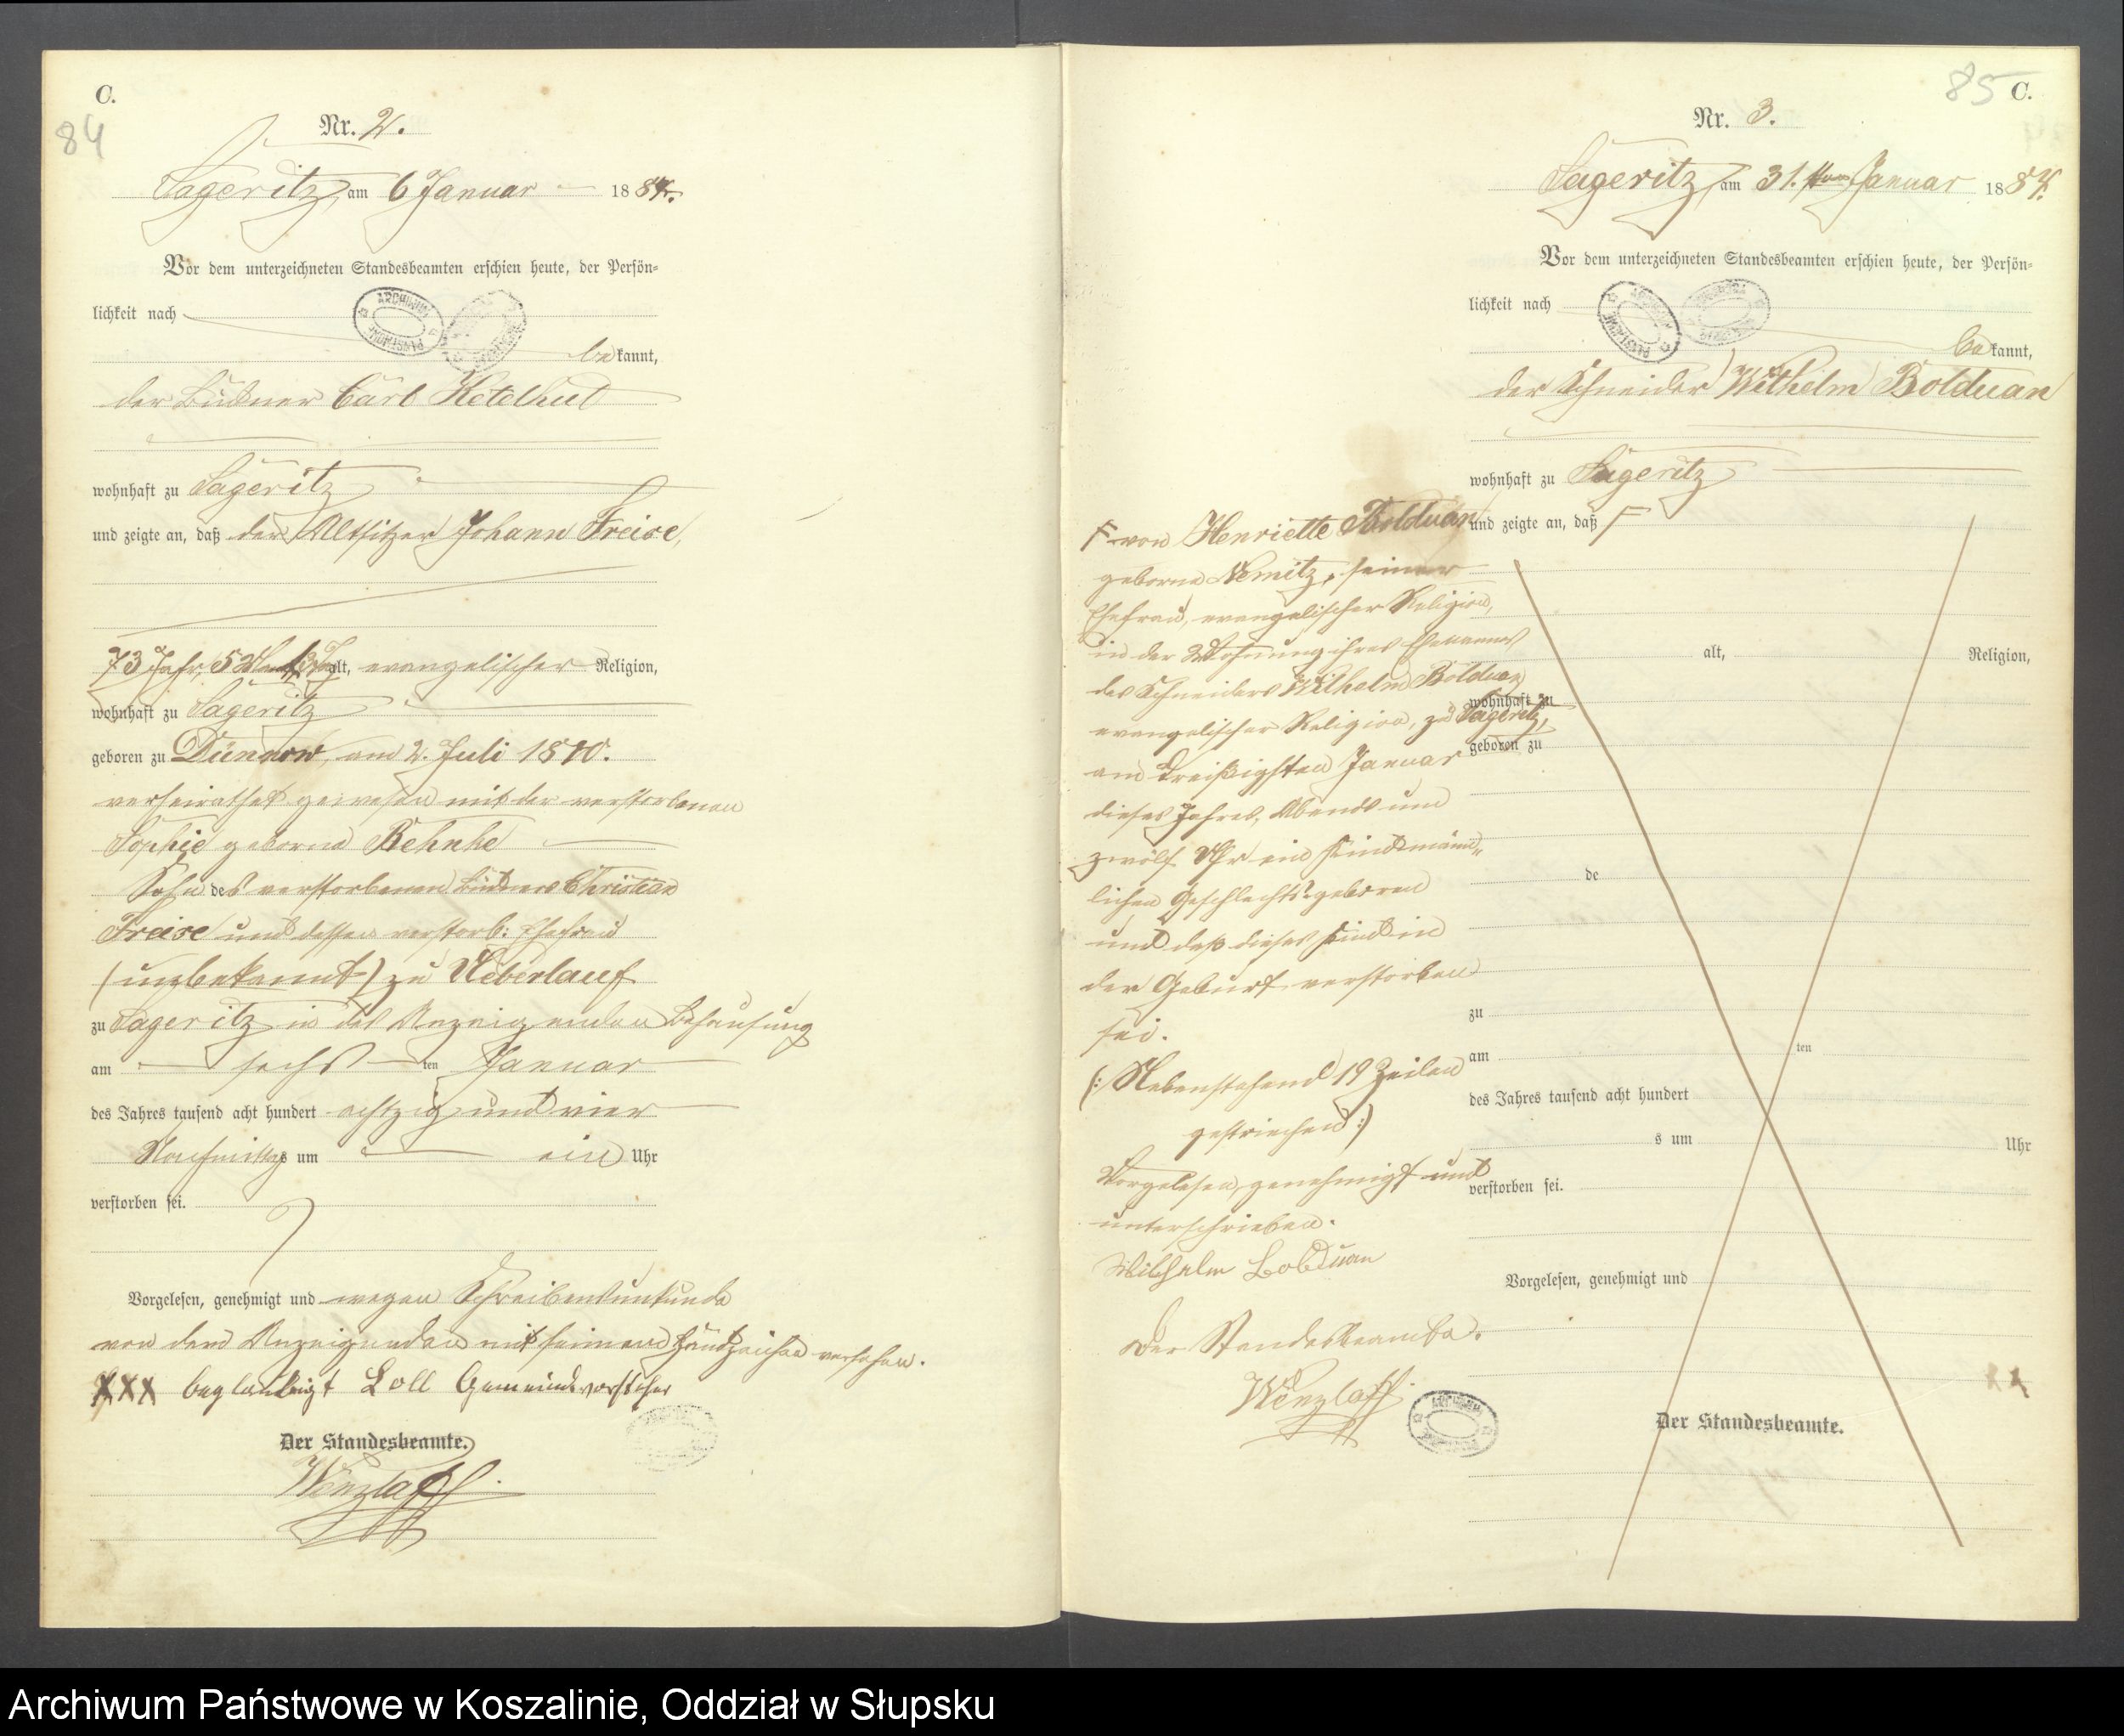 C.
84
Nr. 2.
Sageritz, am 6 Januar 1884.
Vor dem unterzeichneten Standesbeamten erschien heute, der Persön-
lichkeit nach
bekannt,
der Büdner Carl Ketelhut
wohnhaft zu Sageritz
und zeigte an, daß der Altsitzer Johann Freise,
73 Jahr, 5 Mon. alt, evangelischer Religion,
wohnhaft zu Sageritz
geboren zu Dünnow, am 2. Juli 1810.
verheirathet gewesen mit der verstorbenen
Sophie geborne Behnke
Sohn des verstorbenen Büdners Christian
Freise und dessen verstorb: Ehefrau
(unbekannt) zu Ueberlauf
zu Sageritz in des Anzeigenden Behausung
am sechsten Januar
des Jahres tausend acht hundert achtzig und vier
Nachmittags um ein Uhr
verstorben sei.
Vorgelesen, genehmigt und wegen Schreibensunkunde
von dem Anzeigenden mit seinem Handzeichen versehen.
XXX beglaubigt Loll Gemeindevorsteher
Der Standesbeamte.
Wenzlaff.
85 C.
Nr. 3.
Sageritz, am 31.ten Januar 1884.
Vor dem unterzeichneten Standesbeamten erschien heute, der Persön-
lichkeit nach
bekannt,
der Schneider Wilhelm Bolduan
wohnhaft zu Sageritz
und zeigte an, daß F
F von Henriette Bolduan
geborne Nemitz, seiner
Ehefrau, evangelischer Religion,
in der Wohnung ihres Ehemannes
des Schneiders Wilhelm Bolduan
evangelischer Religion, zu Sageritz,
am dreißigsten Januar
dieses Jahres, Abends um
zwölf Uhr ein Kind männ-
lichen Geschlechts geboren
und daß dieses Kind in
der Geburt verstorben
sei.
(: Nebenstehend 19 Zeilen
gestrichen :)
Vorgelesen, genehmigt und
unterschrieben.
Wilhelm Bolduan
Der Standesbeamte.
Wenzlaff.
alt, Religion,
wohnhaft zu
geboren zu
de
zu
am ten
des Jahres tausend acht hundert
s um Uhr
verstorben sei.
Vorgelesen, genehmigt und
Der Standesbeamte.
Archiwum Państwowe w Koszalinie, Oddział w Słupsku